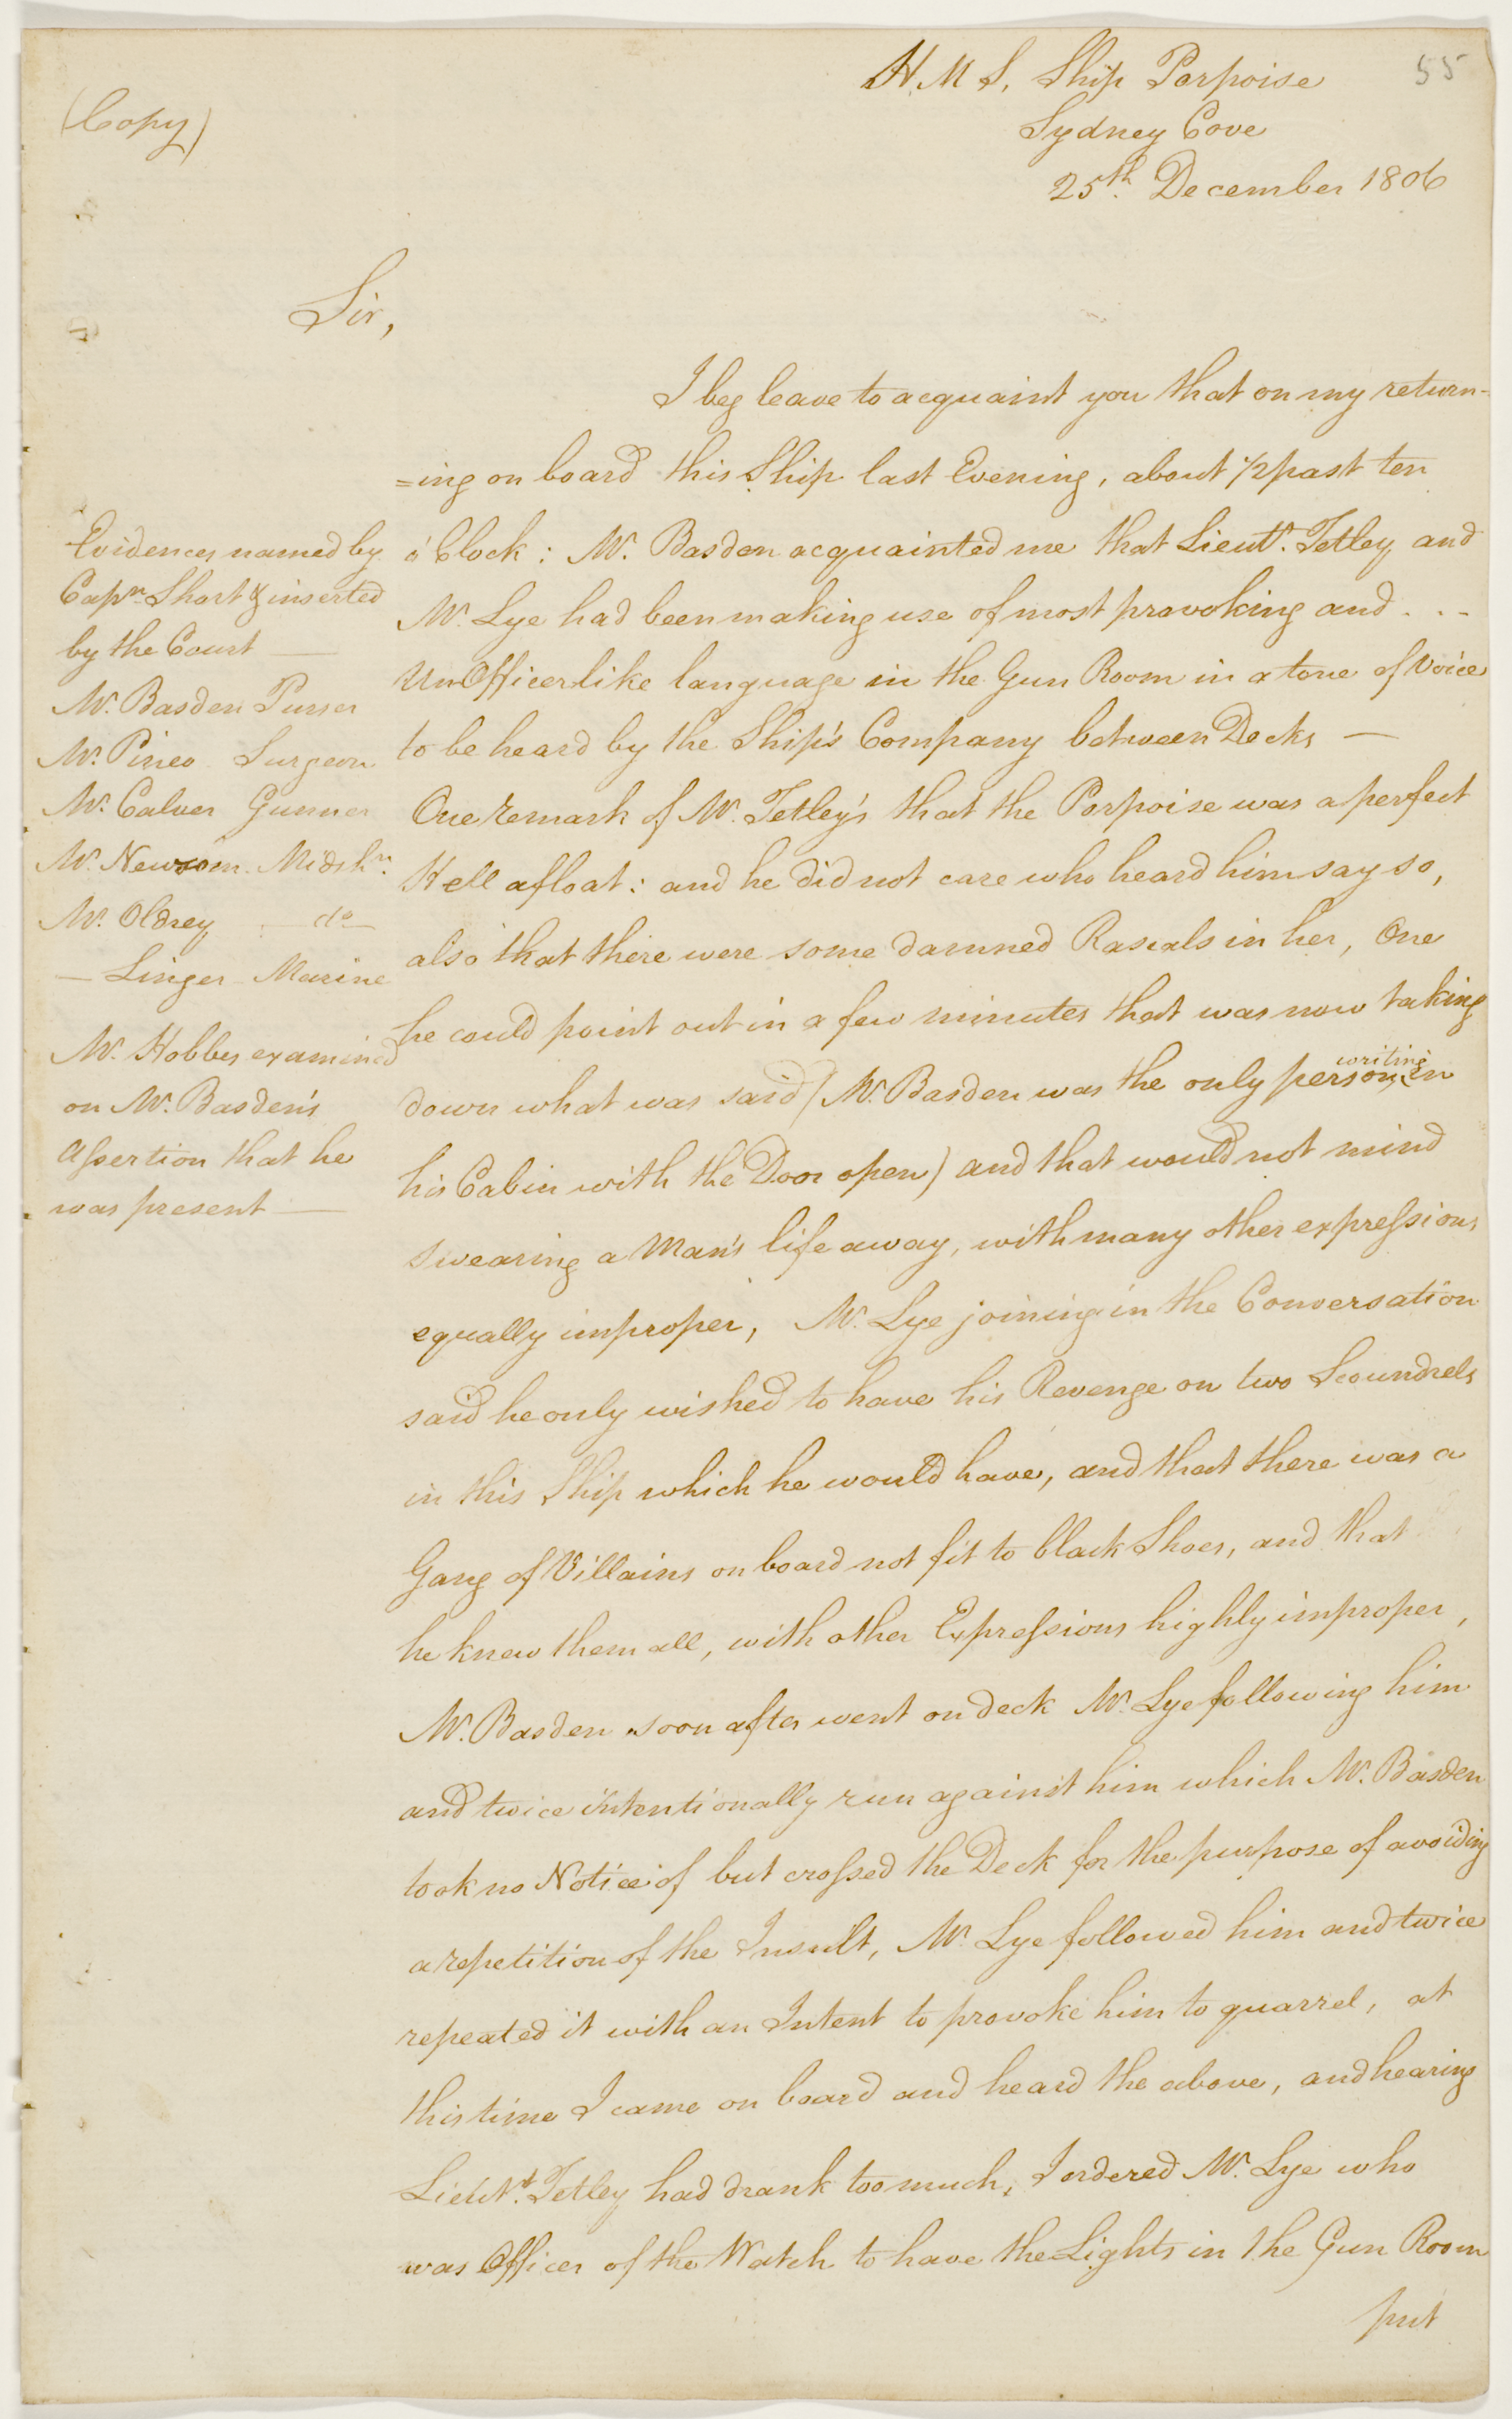 55
(Copy)
H. M S, Ship Porpoise
Sydney Cove
25th. December 1806
Sir,
I beg leave to acquaint you that on my return-
=ing on board this Ship last Evening, about 1/2 past ten
o'Clock: Mr. Basden acquainted me that Lieut. Tetley and
Mr. Lye had been making use of most provoking and - - -
UnOfficerlike language in the Gun Room in a tone of Voice
to be heard by the Ship's Company between Decks —
One remark of Mr. Tetley's that the Porpoise was a perfect
Hell afloat: and he did not care who heard him say so,
also that there were some damned Rascals in her, One
he could point out in a few minutes that was now taking
down what was said (Mr. Basden was the only person writing in
his Cabin with the Door open) and that would not mind
swearing a Man's life away, with many other expressions
equally improper, Mr. Lye joining in the Conversation
said he only wished to have his Revenge on two Scoundrels
in this Ship which he would have, and that there was a
Gang of Villains on board not fit to black Shoes, and that
he knew them all, with other Expressions highly improper,
Mr. Basden soon after went on deck Mr. Lye following him
and twice intentionally run against him which Mr. Basden
took no Notice of but crossed the Deck for the purpose of avoiding
a repetition of the Insult, Mr. Lye followed him and twice
repeated it with an Intent to provoke him to quarrel, at
this time I came on board and heard the above, and hearing
Lieutt. Tetley had drank too much, I ordered Mr. Lye who
was Officer of the Watch to have the Lights in the Gun Room
put
Evidences named by
Capn. Short & inserted
by the Court —
Mr. Basden Purser
Mr. Pineo Surgeon
Mr. Calver Gunner
Mr. Newsom Midshn.
Mr. Oldrey — do —
— Linger Marine
Mr. Hobbs examined
on Mr. Basden's
Assertion that he
was present —